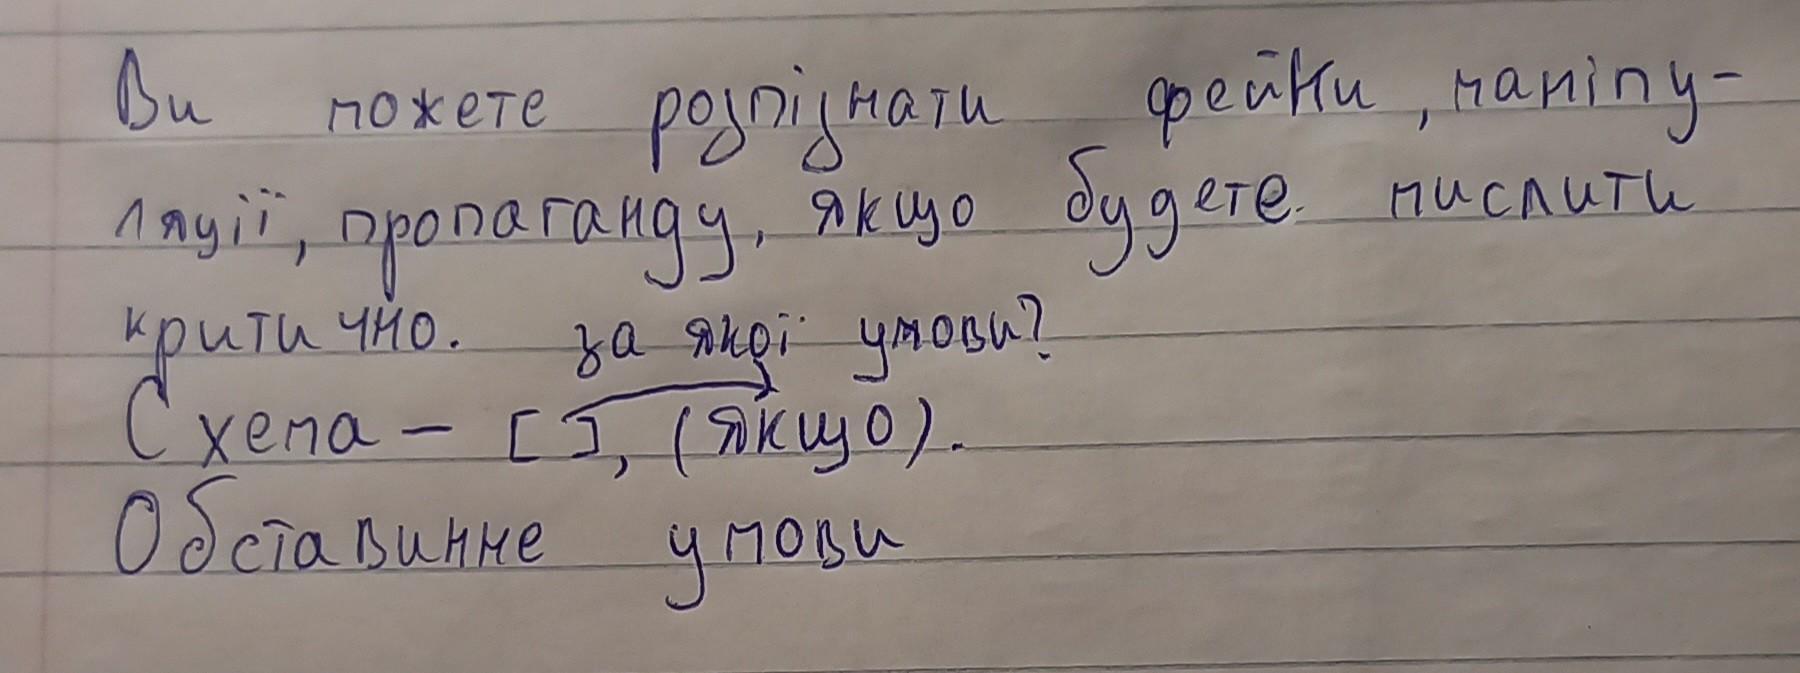 Ви можете розпізнати фейки, маніпу-
ляції, пропаганду, якщо будете. мислити
критично. за якої умови?
Схема – [ ], (якщо).
Обставинне умови